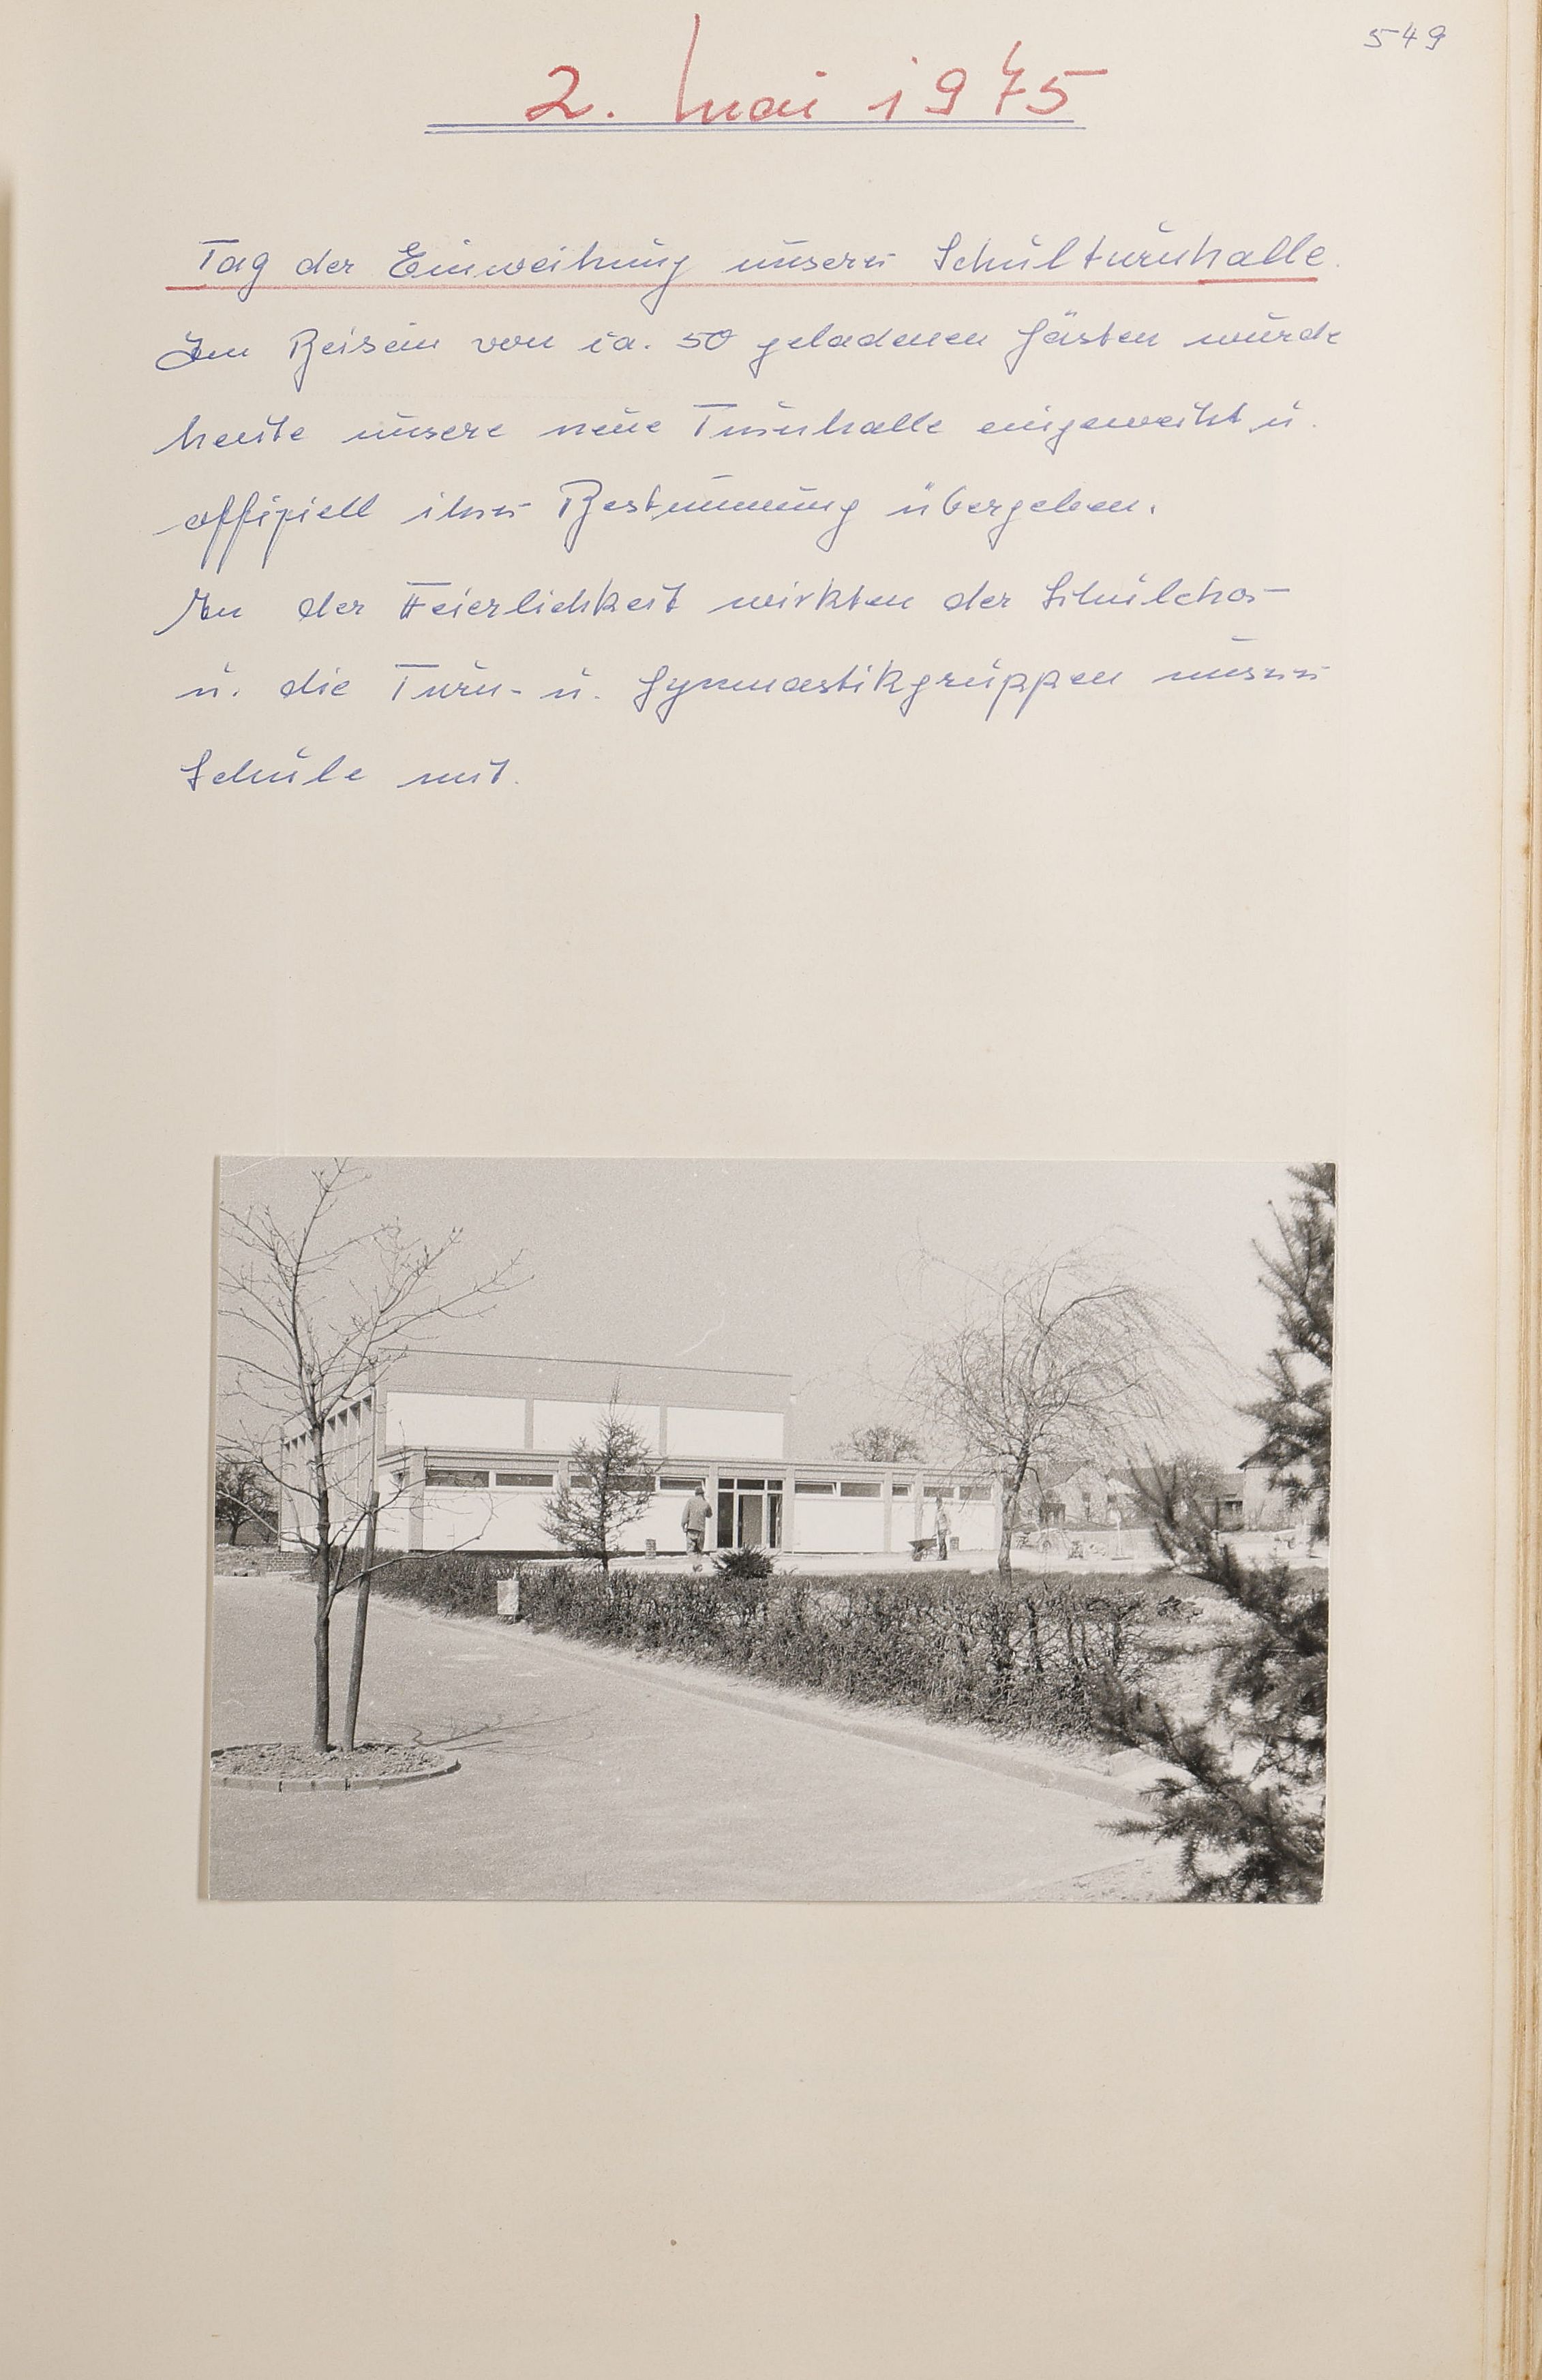 549
2. Mai 1975
Tag der Einweihung unserer Schulturnhalle.
Im Beisein von ca. 50 geladenen Gästen wurde
heute unsere neue Turnhalle eingeweiht u.
offiziell ihrer Bestimmung übergeben.
An der Feierlichkeit wirkten der Schulchor
u. die Turn- u. Gymnastikgruppen unserer
Schule mit.